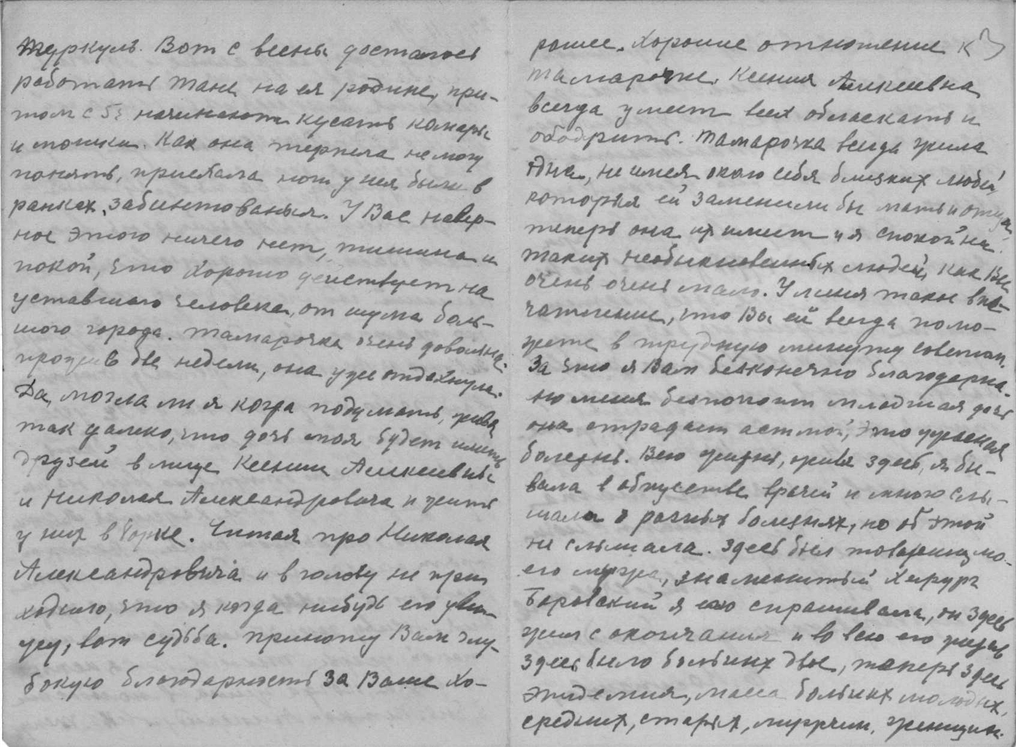 Вот с весны досталось
работать Тане на ея родине, при-
том с 5 начинают кусать комары
и мошки. Как она терпела не могу
понять, приехала ноги у нея были в
ранках, забинтованыя. У Вас навер-
ное этого ничего нет, тишина и
покой, что хорошо действует на
уставшаго человека, от шума боль-
шого города. Тамарочка очень довольна
две недели, она уже отдохнула.
Да, могла ли я когда подумать, живя
так далеко, что дочь моя будет иметь
друзей в лице Ксении Алексеевны
и Николая Александровича и жить
у них в Читая про Николая
Александровича и в голову не при-
ходило, что я когда нибудь его уви-
жу, вот судьба. Приношу Вам глу-
бокую благодарность за Ваше хо-
рошее. Хорошее отношение к
Тамарочке. Ксения Алексеевна
всегда умеет всех обласкать и
ободрить. Тамарочка всегда жила
одна, не имея около себя близких людей
которыя ей заменили бы мать и отца,
теперь она их имеет и я спокойна.
Таких необыкновенных людей, как Вы
очень очень мало. У меня такое впе-
чатление, что Вы ей всегда помо-
жете в трудную минуту советом,
За что я Вам безконечно благодарна.
но меня безпокоит младшая дочь
она страдает астмой, это ужасная
болезнь. Всю жизнь, живя здесь, я бы-
вала в обществе врачей и много слы-
шала о разных болезнях, но об этой
не слышала. Здесь был товарищ мо-
его мужа, знаменитый хирург
Боровский я его спрашивала, он здесь
жил с окончания и во всю его жизнь
здесь было больных двое, теперь здесь
эпидемия, масса больных молодых,
средних, старых, мужчин, женщин.